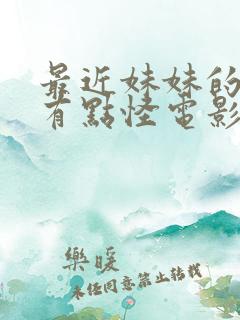 最近妹妹的
有點怪電影
樂暖
未任同意禁止轉載